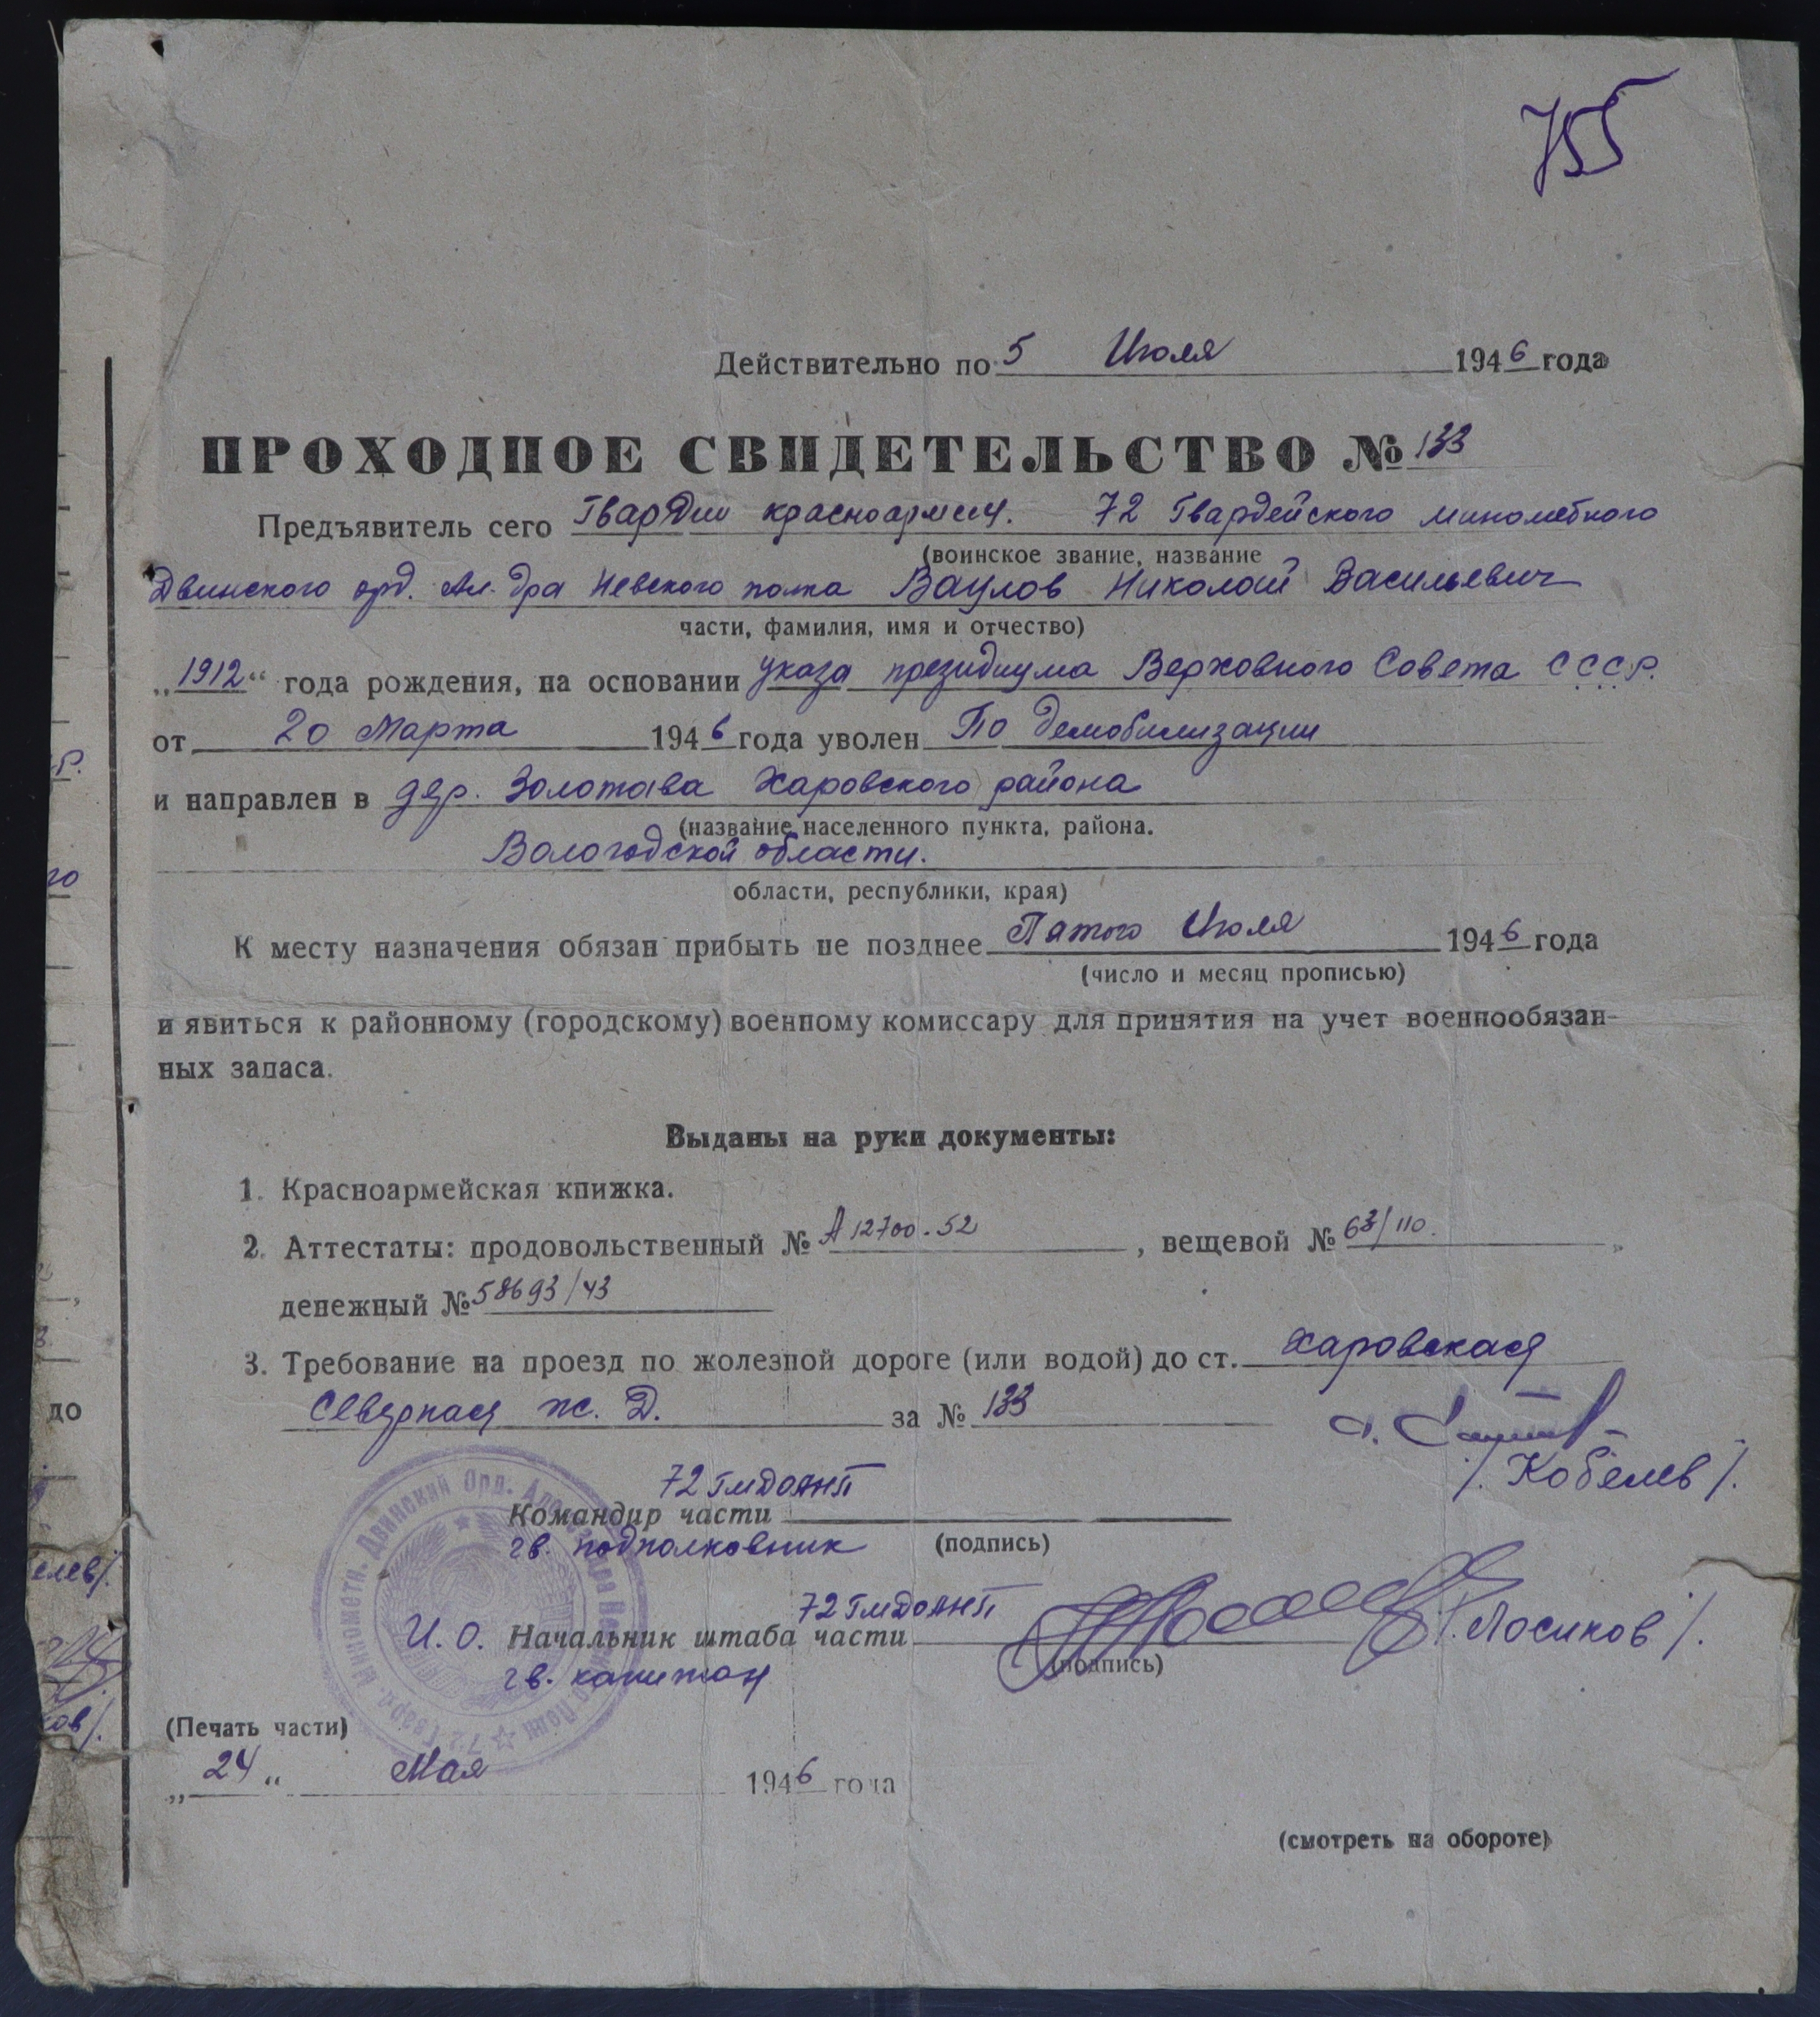 755
Действительно по 5 Июля 1946 года
ПРОХОДНОЕ СВИДЕТЕЛЬСТВО № 133
Предъявитель сего Гвардии красноармеец. 72 Гвардейского минометного
(воинское звание, название
Двинского орд. Ал-дра Невского полка Ваулов Николай Васильевич
части, фамилия, имя и отчество)
„1912“ года рождения, на основании указа президиума Верховного Совета СССР.
от 20 Марта 1946 года уволен По демобилизации
и направлен в дер. Золотава Харовского района
(название населенного пункта, района.
Вологодской области.
области, республики, края)
К месту назначения обязан прибыть не позднее Пятого Июля 1946 года
(число и месяц прописью)
и явиться к районному (городскому) военному комиссару для принятия на учет военнообязан-
ных запаса.
Выданы на руки документы:
1. Красноармейская книжка.
2. Аттестаты: продовольственный № А12700-52, вещевой № 63/110.
денежный № 58693/43
3. Требование на проезд по жолезной дороге (или водой) до ст. Харовская
Северная ж. Д. за № 133
/Кобелев/.
72 ГМДОАНП
Командир части
гв. подполковник (подпись)
72 ГМДОАНП
И. О. Начальник штаба части /Лосиков/.
гв. капитан (подпись)
72 Гвард. Минометн. Двинский Орд. Александра Невского Полк
(Печать части)
„24“ Мая 1946 года
(смотреть на обороте)
го
до
елев/.
ов/.